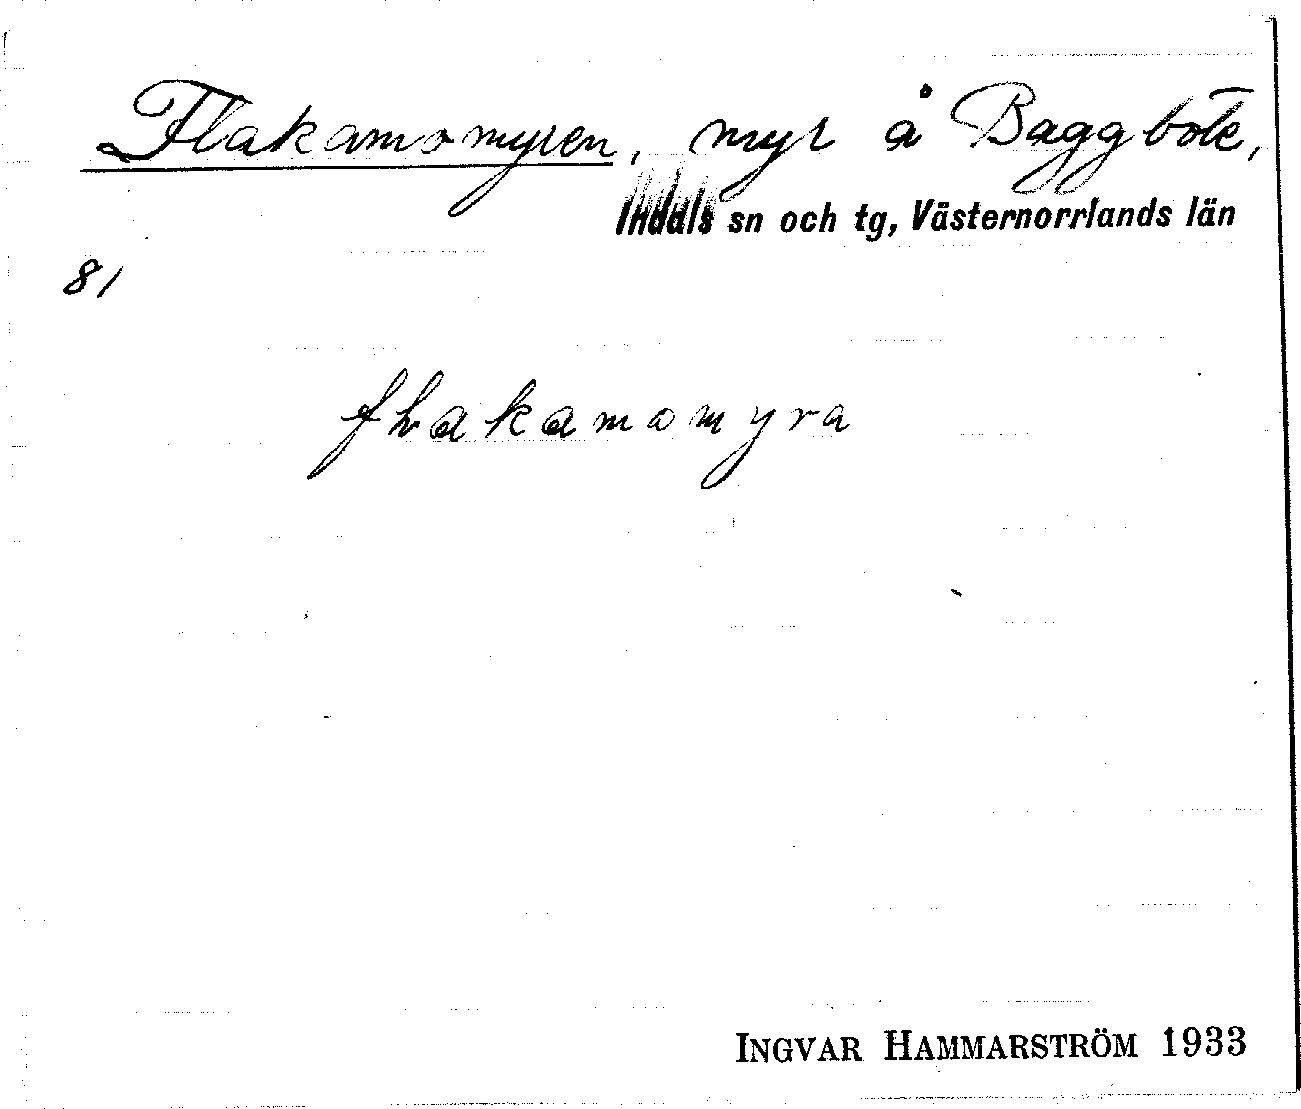 Flakamomyren, myr å Baggböle,
Indals sn och tg, Västernorrlands län
81
flakamomyra
INGVAR HAMMARSTRÖM 1933